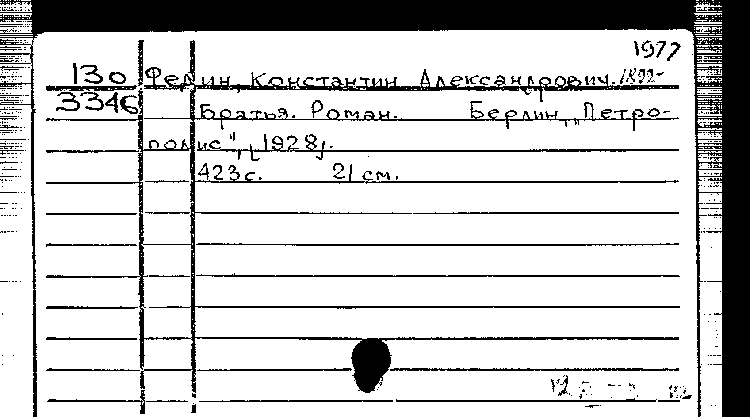 1977
130 Федин, Константин Александрович. 1892-
3346 Братья. Роман. Берлин, „Петро-
полис", [1928].
423 с. 21 см.